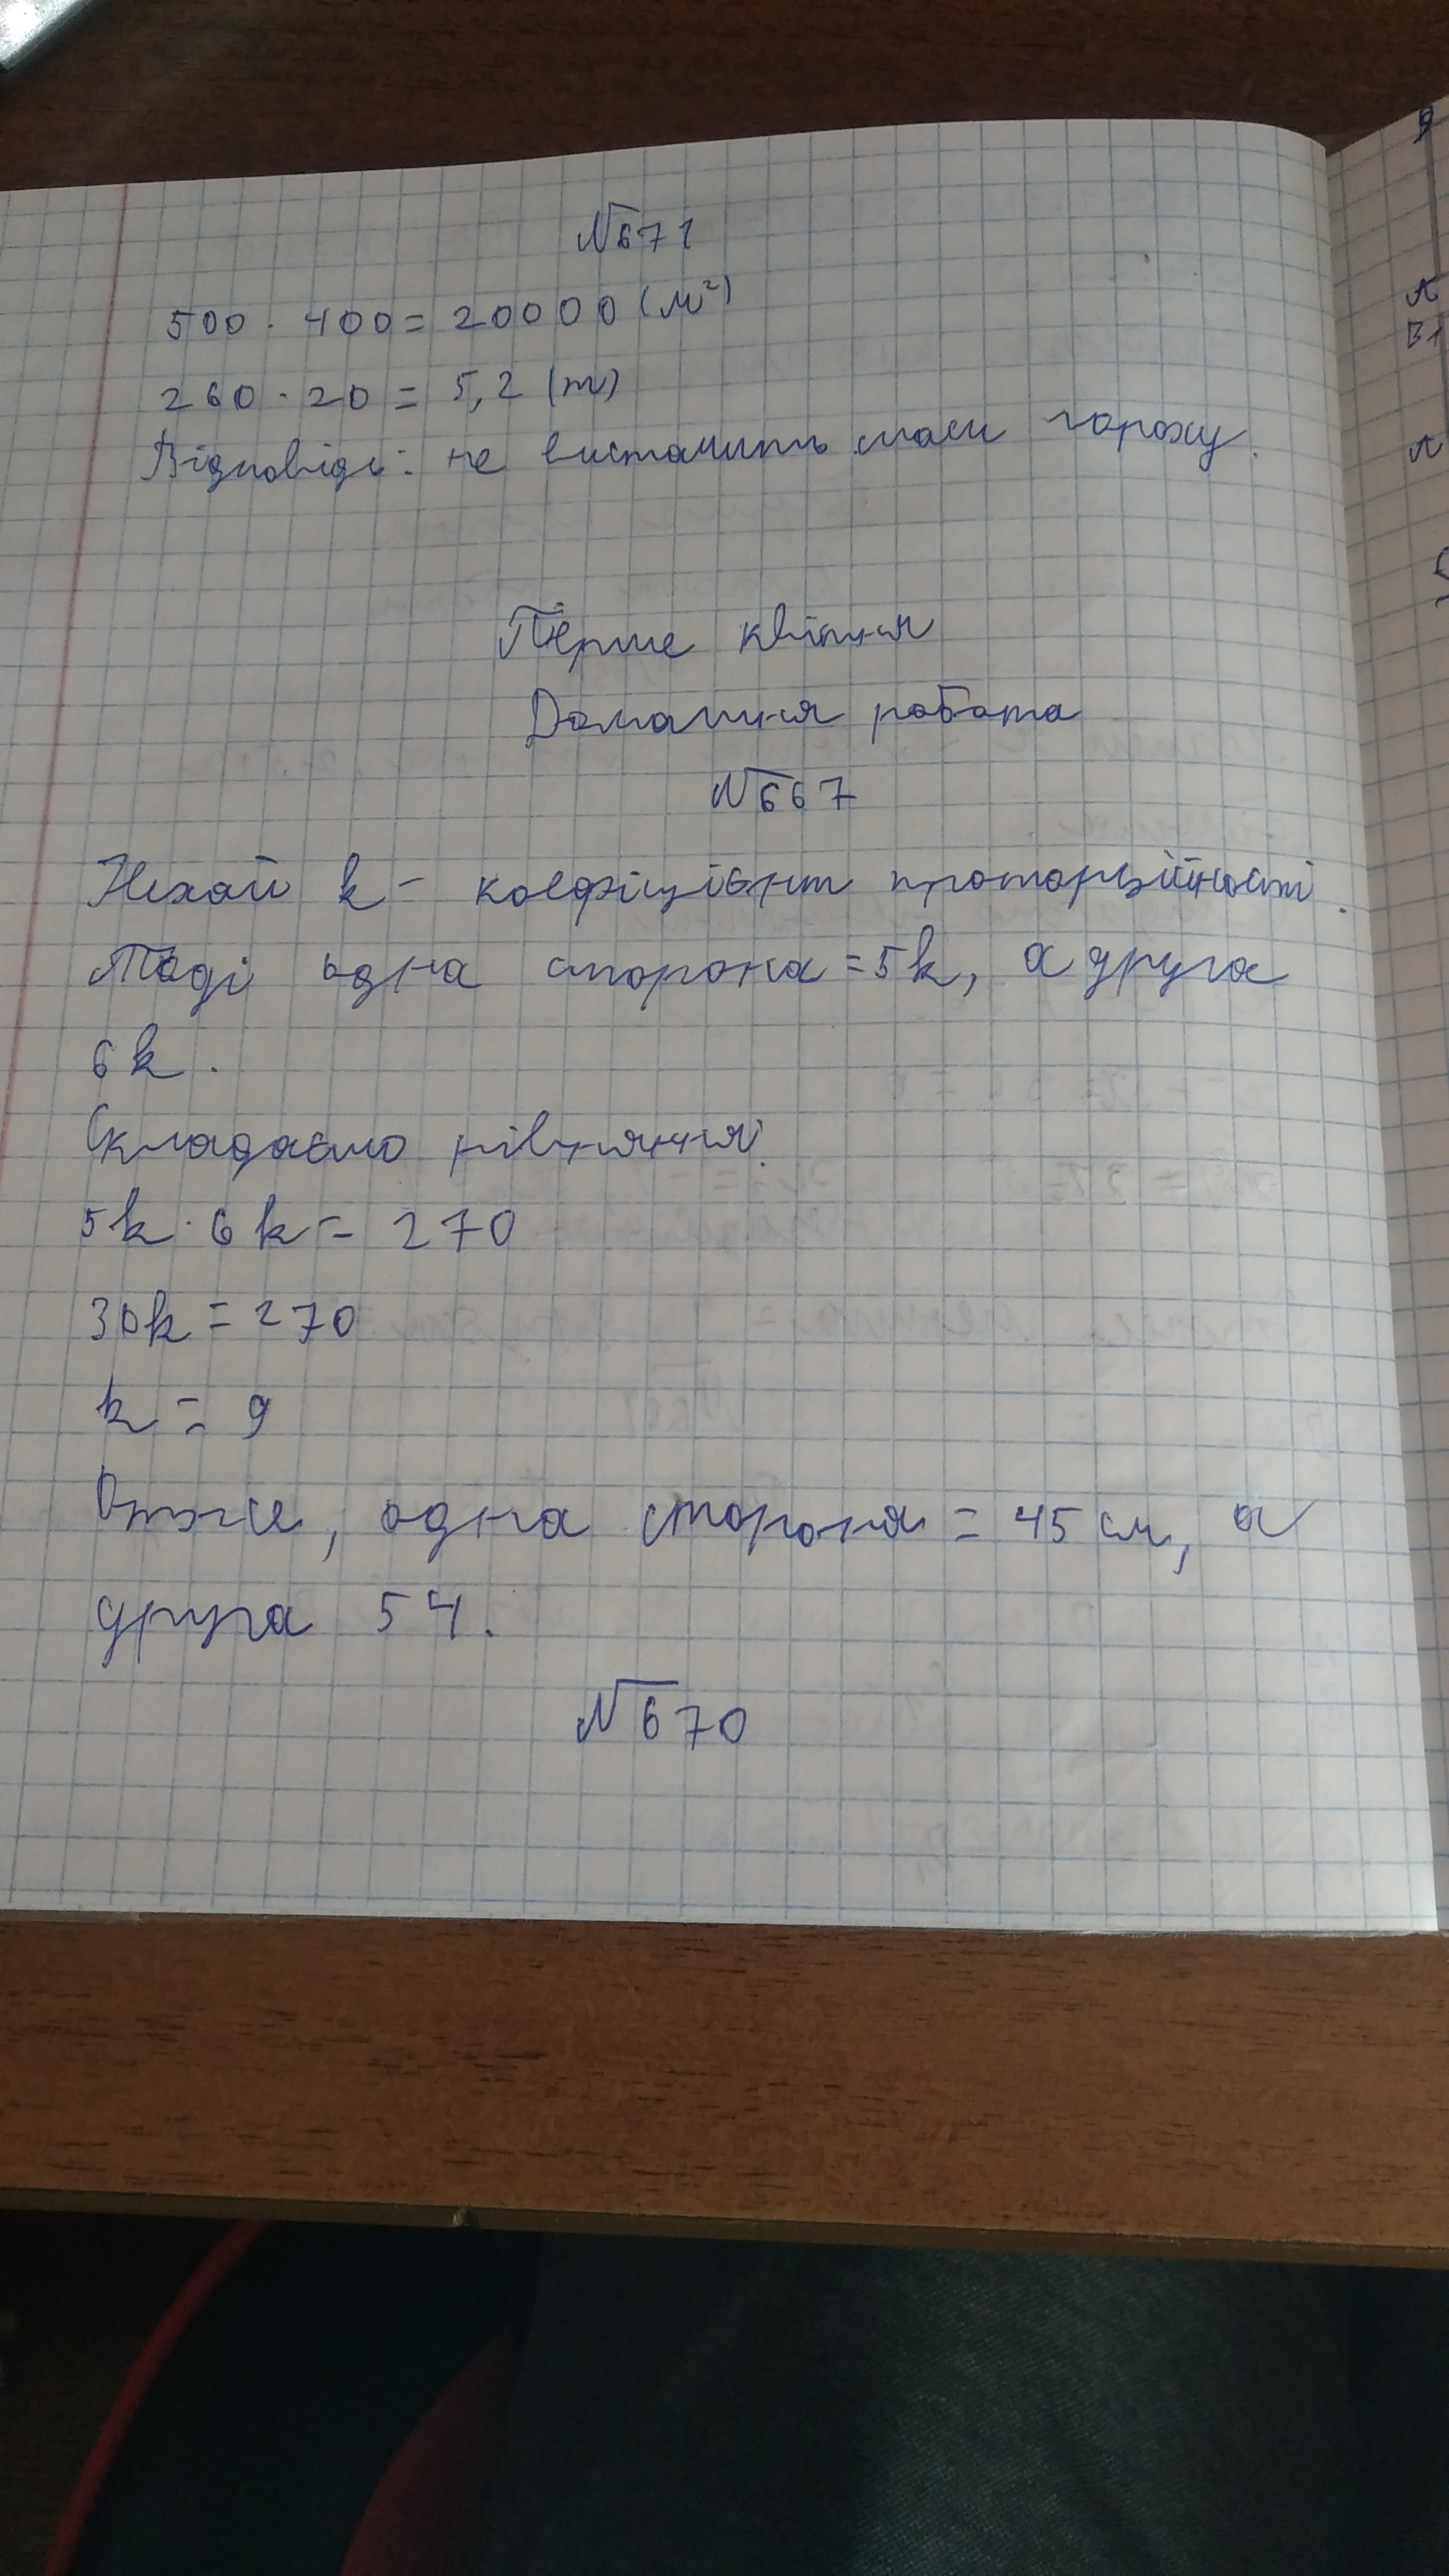 №671
500 · 400 = 20000 (м²)
260 · 20 = 5,2 (т)
Відповідь: не вистачить маси гороху.
Перше квітня
Домашня робота
№667
Нехай k - коефіцієнт пропорційності.
Тоді одна сторона = 5k, а друга
6k.
Складаємо рівняння:
5k · 6k = 270
30k = 270
k = 9
Отже, одна сторона = 45 см, а
друга 54.
№670